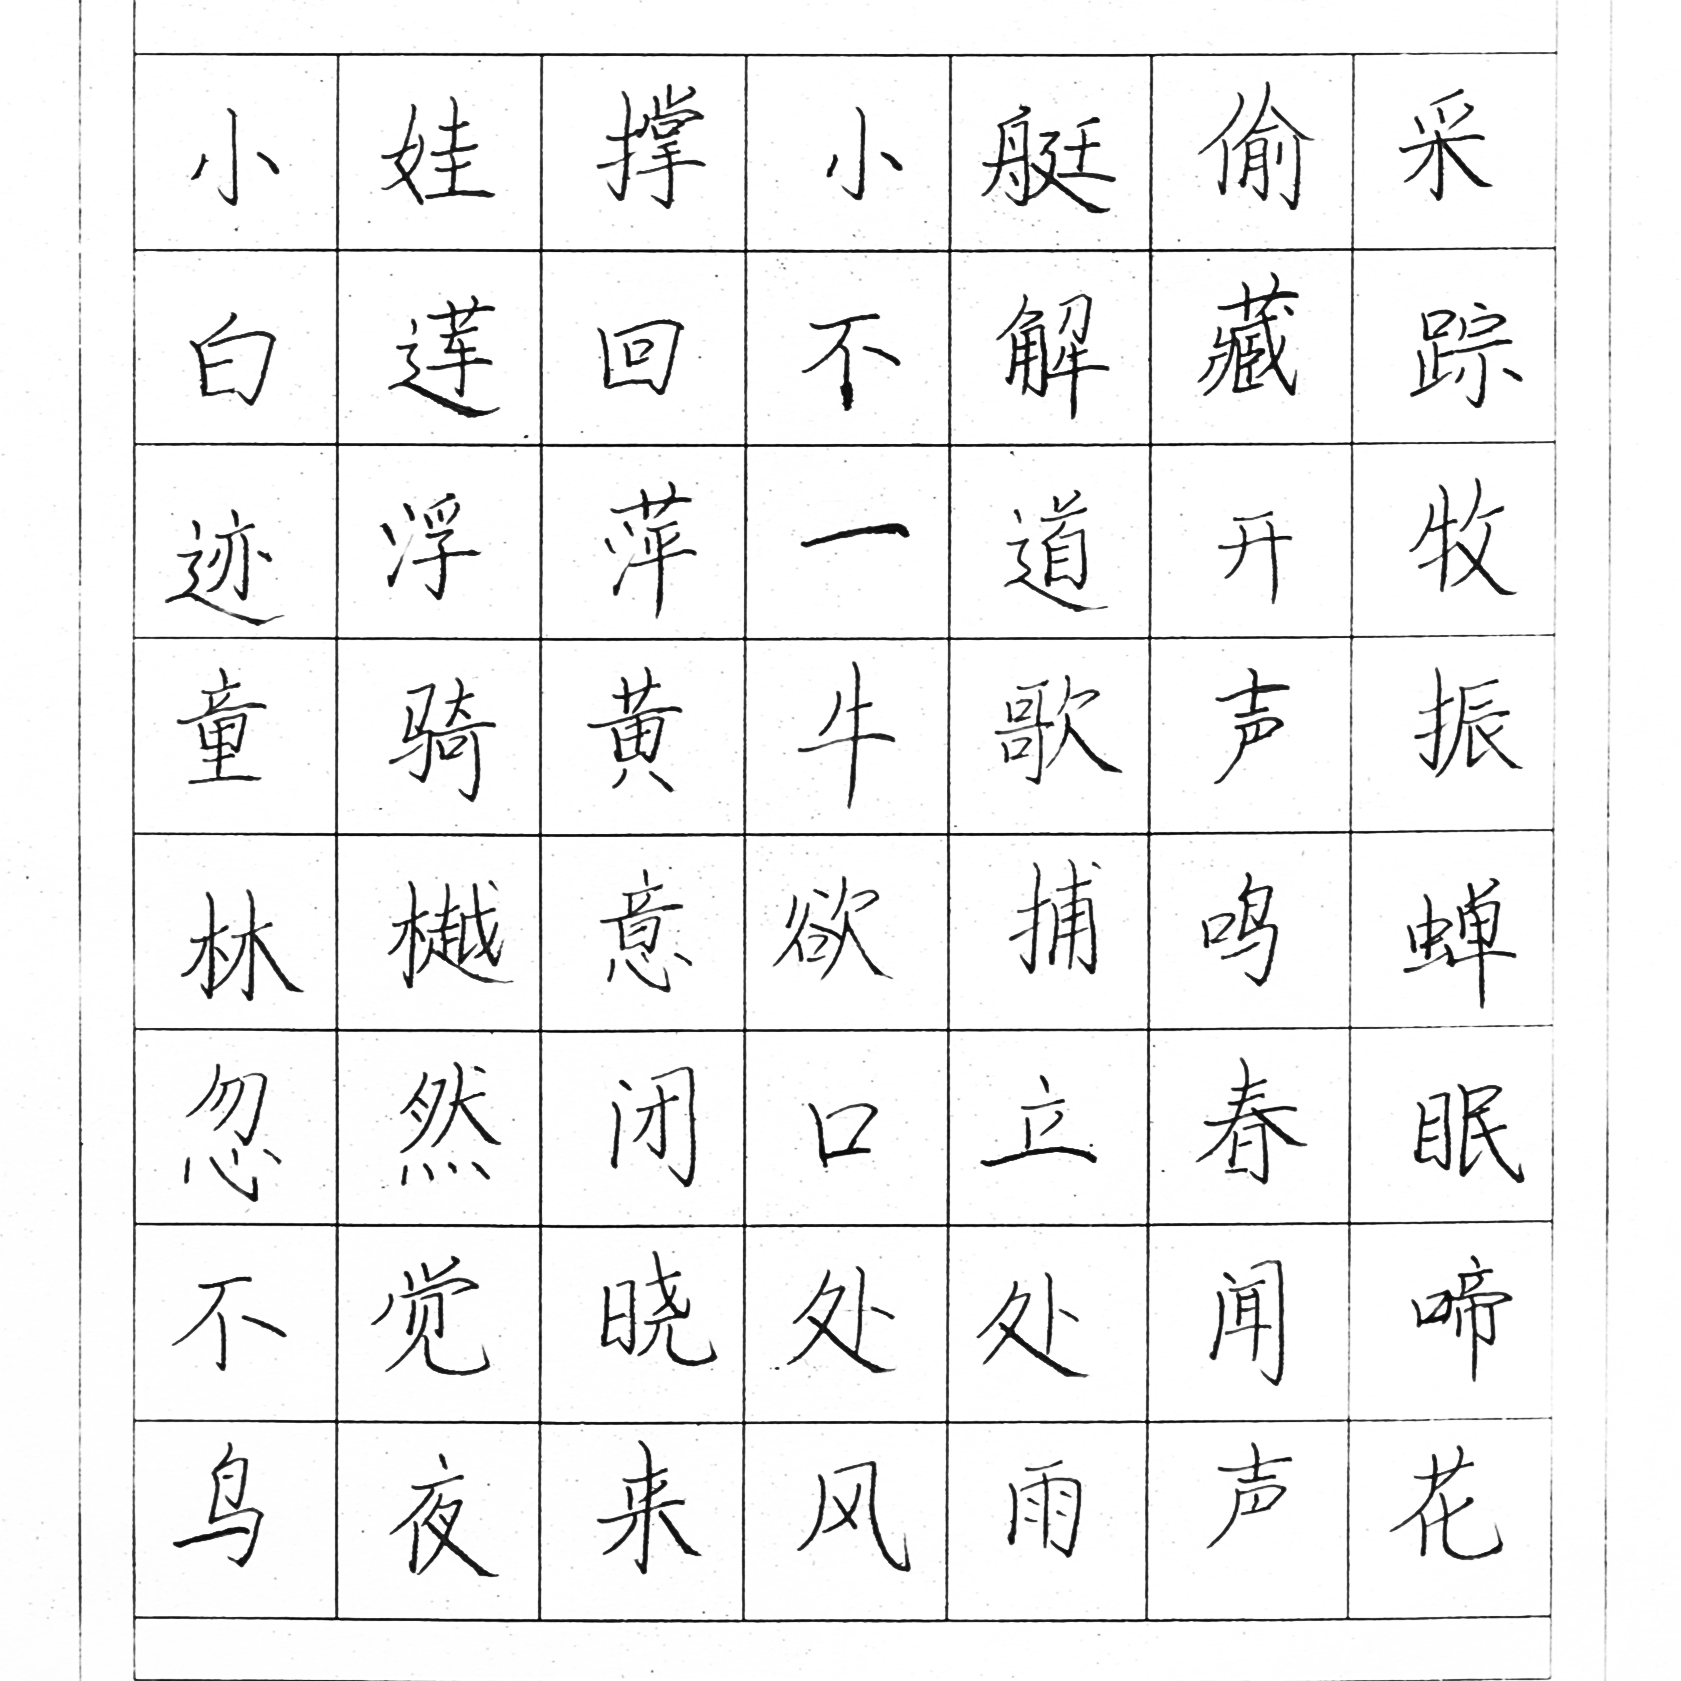 小娃撑小艇偷采
白莲回不解藏踪
迹浮萍一道开牧
童骑黄牛歌声振
林樾意欲捕鸣蝉
忽然闭口立春眠
不觉晓处处闻啼
鸟夜来风雨声花